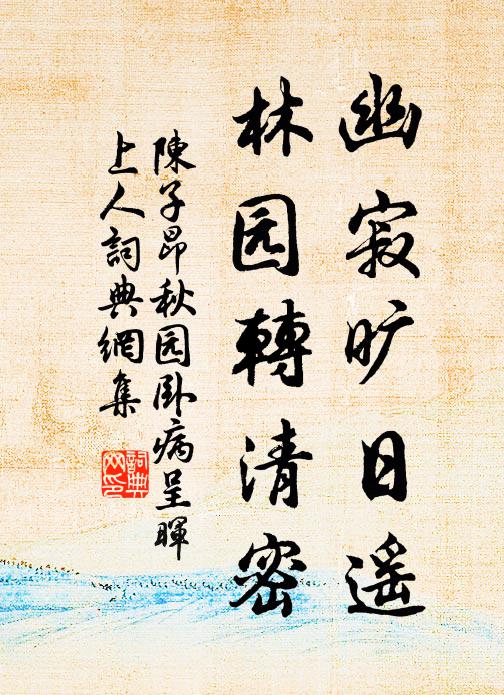 幽寂旷日遥
林园轉清密
陳子昂秋园卧病呈暉
上人詞典網集
詞典
网印